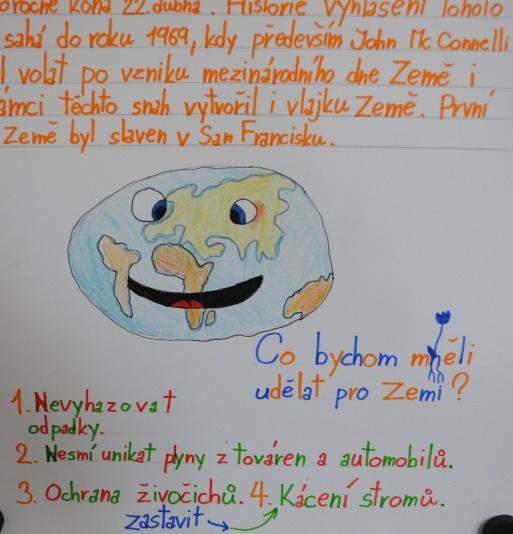 koná 22. dubna. Historie vyhlášení tohoto
sahá do roku 1969, kdy především John Mc Connelli
l volat po vzniku mezinárodního dne Země i
ámci těchto snah vytvořil i vlajku Země. První
Země byl slaven v San Francisku.
Co bychom mněli
udělat pro Zemi?
1. Nevyhazovat
odpadky.
2. Nesmí unikat plyny z továren a automobilů.
3. Ochrana živočichů. 4. Kácení stromů.
zastavit